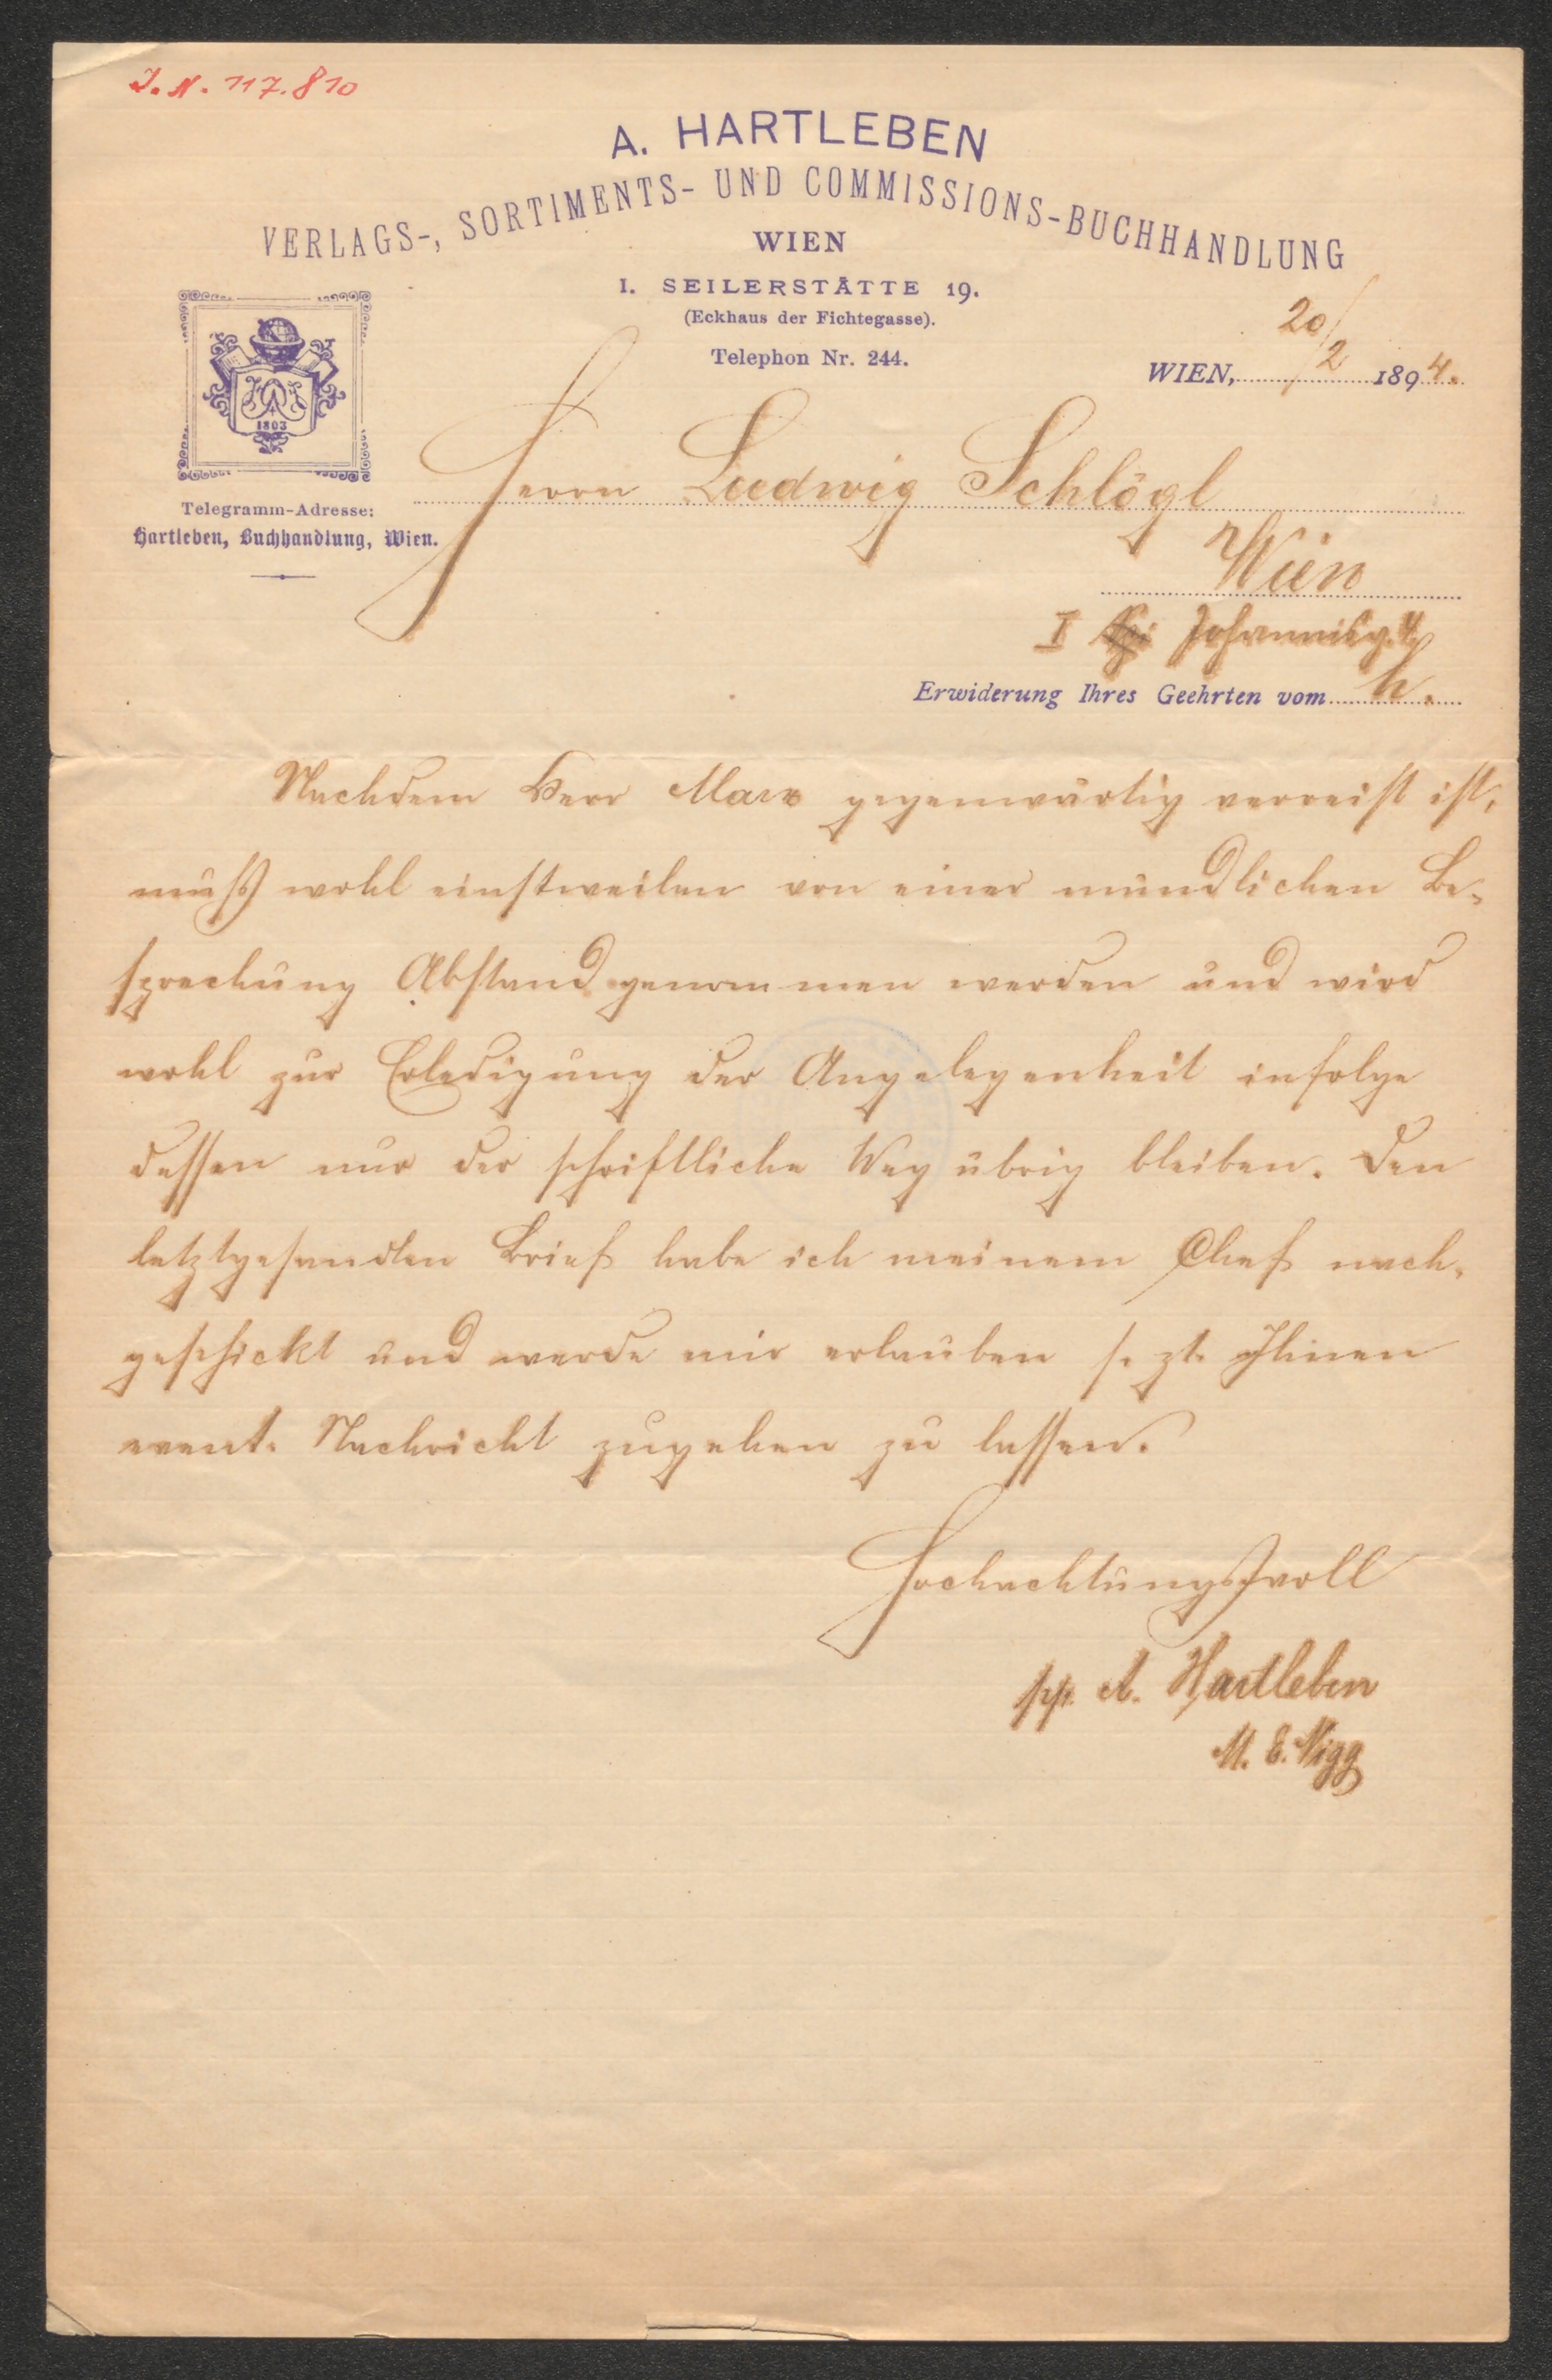 J. N. 117.810
A. HARTLEBEN
VERLAGS-, SORTIMENTS- UND COMMISSIONS-BUCHHANDLUNG
WIEN
I. SEILERSTÄTTE 19.
(Eckhaus der Fichtegasse).
Telephon Nr. 244.
WIEN, 20/2 1894.
1803
Telegramm-Adresse:
Hartleben, Buchhandlung, Wien.
Herrn Ludwig Schlögl
Wien
I Johannisg. 4
Erwiderung Ihres Geehrten vom h.
Nachdem Herr Marx gegenwärtig verreist ist,
muß wohl einstweilen von einer mündlichen Be-
sprechung Abstand genommen werden und wird
wohl zur Erledigung der Angelegenheit infolge
dessen nur der schriftliche Weg übrig bleiben. Den
letztgesandten Brief habe ich meinem Chef nach-
geschickt und werde mir erlauben s. zt. Ihnen
event. Nachricht zugehen zu lassen.
Hochachtungsvoll
pp. A. Hartleben
M. E. Nigg